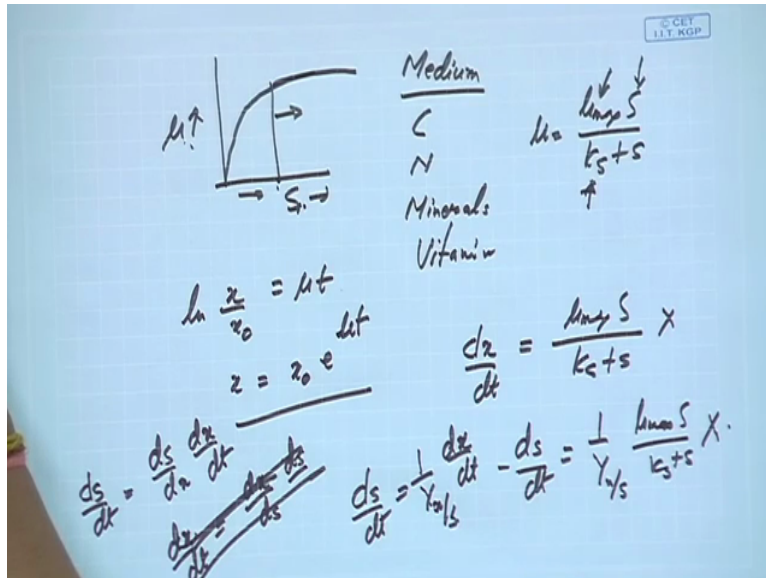 © CET
I.I.T. KGP
μ↑
S →
Medium
C
N
Minerals
Vitamin
μ = μmax S / (Ks + s)
ln x/x₀ = μt
x = x₀ e^μt
dx/dt = μmax S / (Ks + s) X
ds/dt = ds/dx dx/dt
dx/dt = dx/ds ds/dt
ds/dt = 1/Yx/s dx/dt
- ds/dt = 1/Yx/s μmax S / (Ks + s) X.